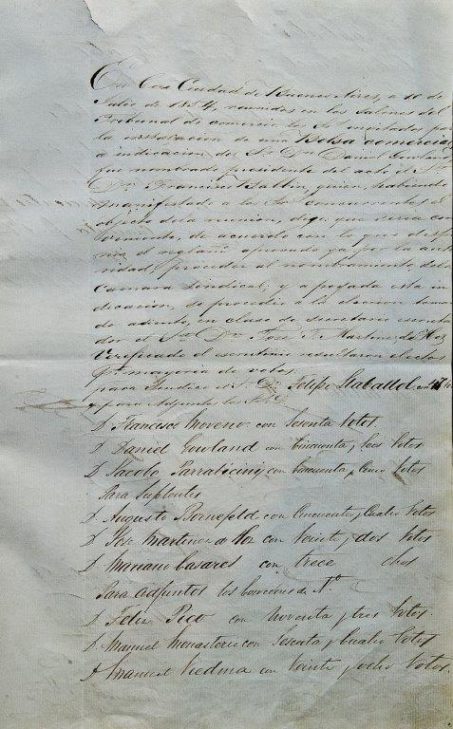 En la Ciudad de Buenos Aires, a 10 de
Julio de 1854, reunidos en los salones del
Tribunal de comercio los Sres invitados por
la instalacion de una Bolsa comercial
a indicacion del Sr Dn Daniel Gowland
fue nombrado presidente del acto el Sr
Dn Francisco Balbin, quien habiendo
manifestado a los Sres concurrentes el
objecto de la reunion, dijo, que seria con
veniente, de acuerdo con lo que
el aprovado ya por la auto
ridad, proceder al nombramiento de la
Camara Sindical, y apoyada esta in
dicacion, se procedio a la eleccion
de asiento, en clase de secretario
dor el Sr Dn Jose T. Martinez de Hoz
Verificado el escrutinio resultaron electos
mayoria de votos
para Sindico el Sr Dn Felipe 47
y para Adjuntos los Sres
D. Francisco Moreno con Sesenta Votos
D. Daniel Gowland con Cincuenta y Votos
D. Jacobo Parravicini, con Cincuenta y Cinco Votos
Para Suplentes
D. Augusto Bornefeld con Cincuenta y Cuatro Votos
D. Jose Martinez de Hoz con Veinte y dos Votos
D. Mariano Casares con trece
Para adjuntos los
D. Felix Pico con Noventa y tres Votos.
D. Manuel Monasterio con Sesenta y Cuatro Votos
D. Manuel Viedma con Veinte y ocho Votos.